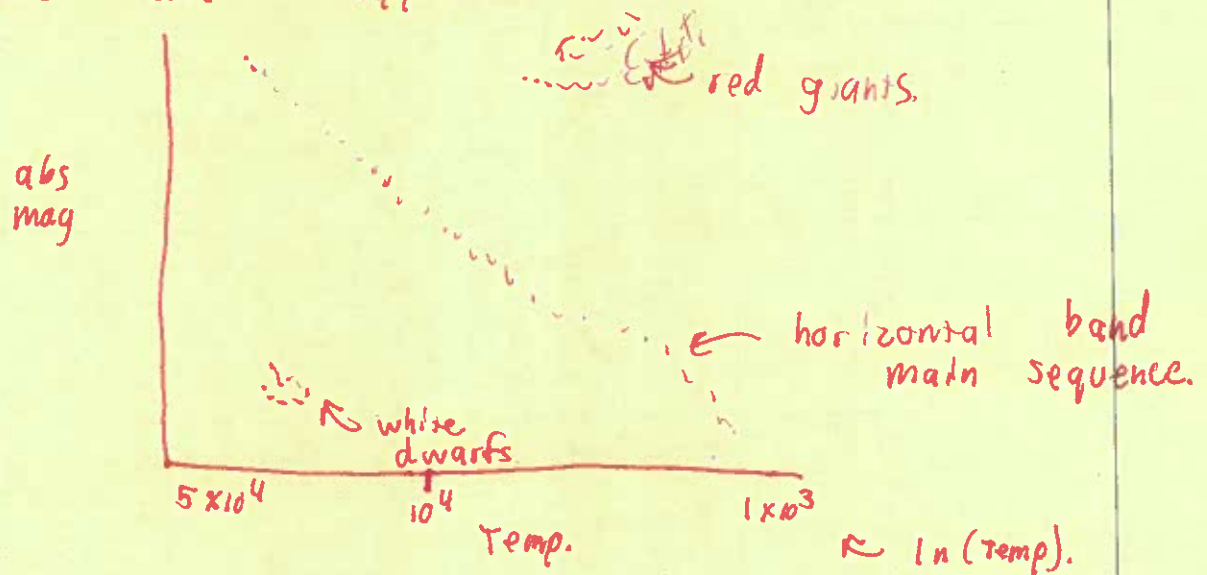 red giants.
abs
mag
horizontal band
main sequence.
white
dwarfs
5 x 10⁴
10⁴
1 x 10³
Temp.
ln (Temp).